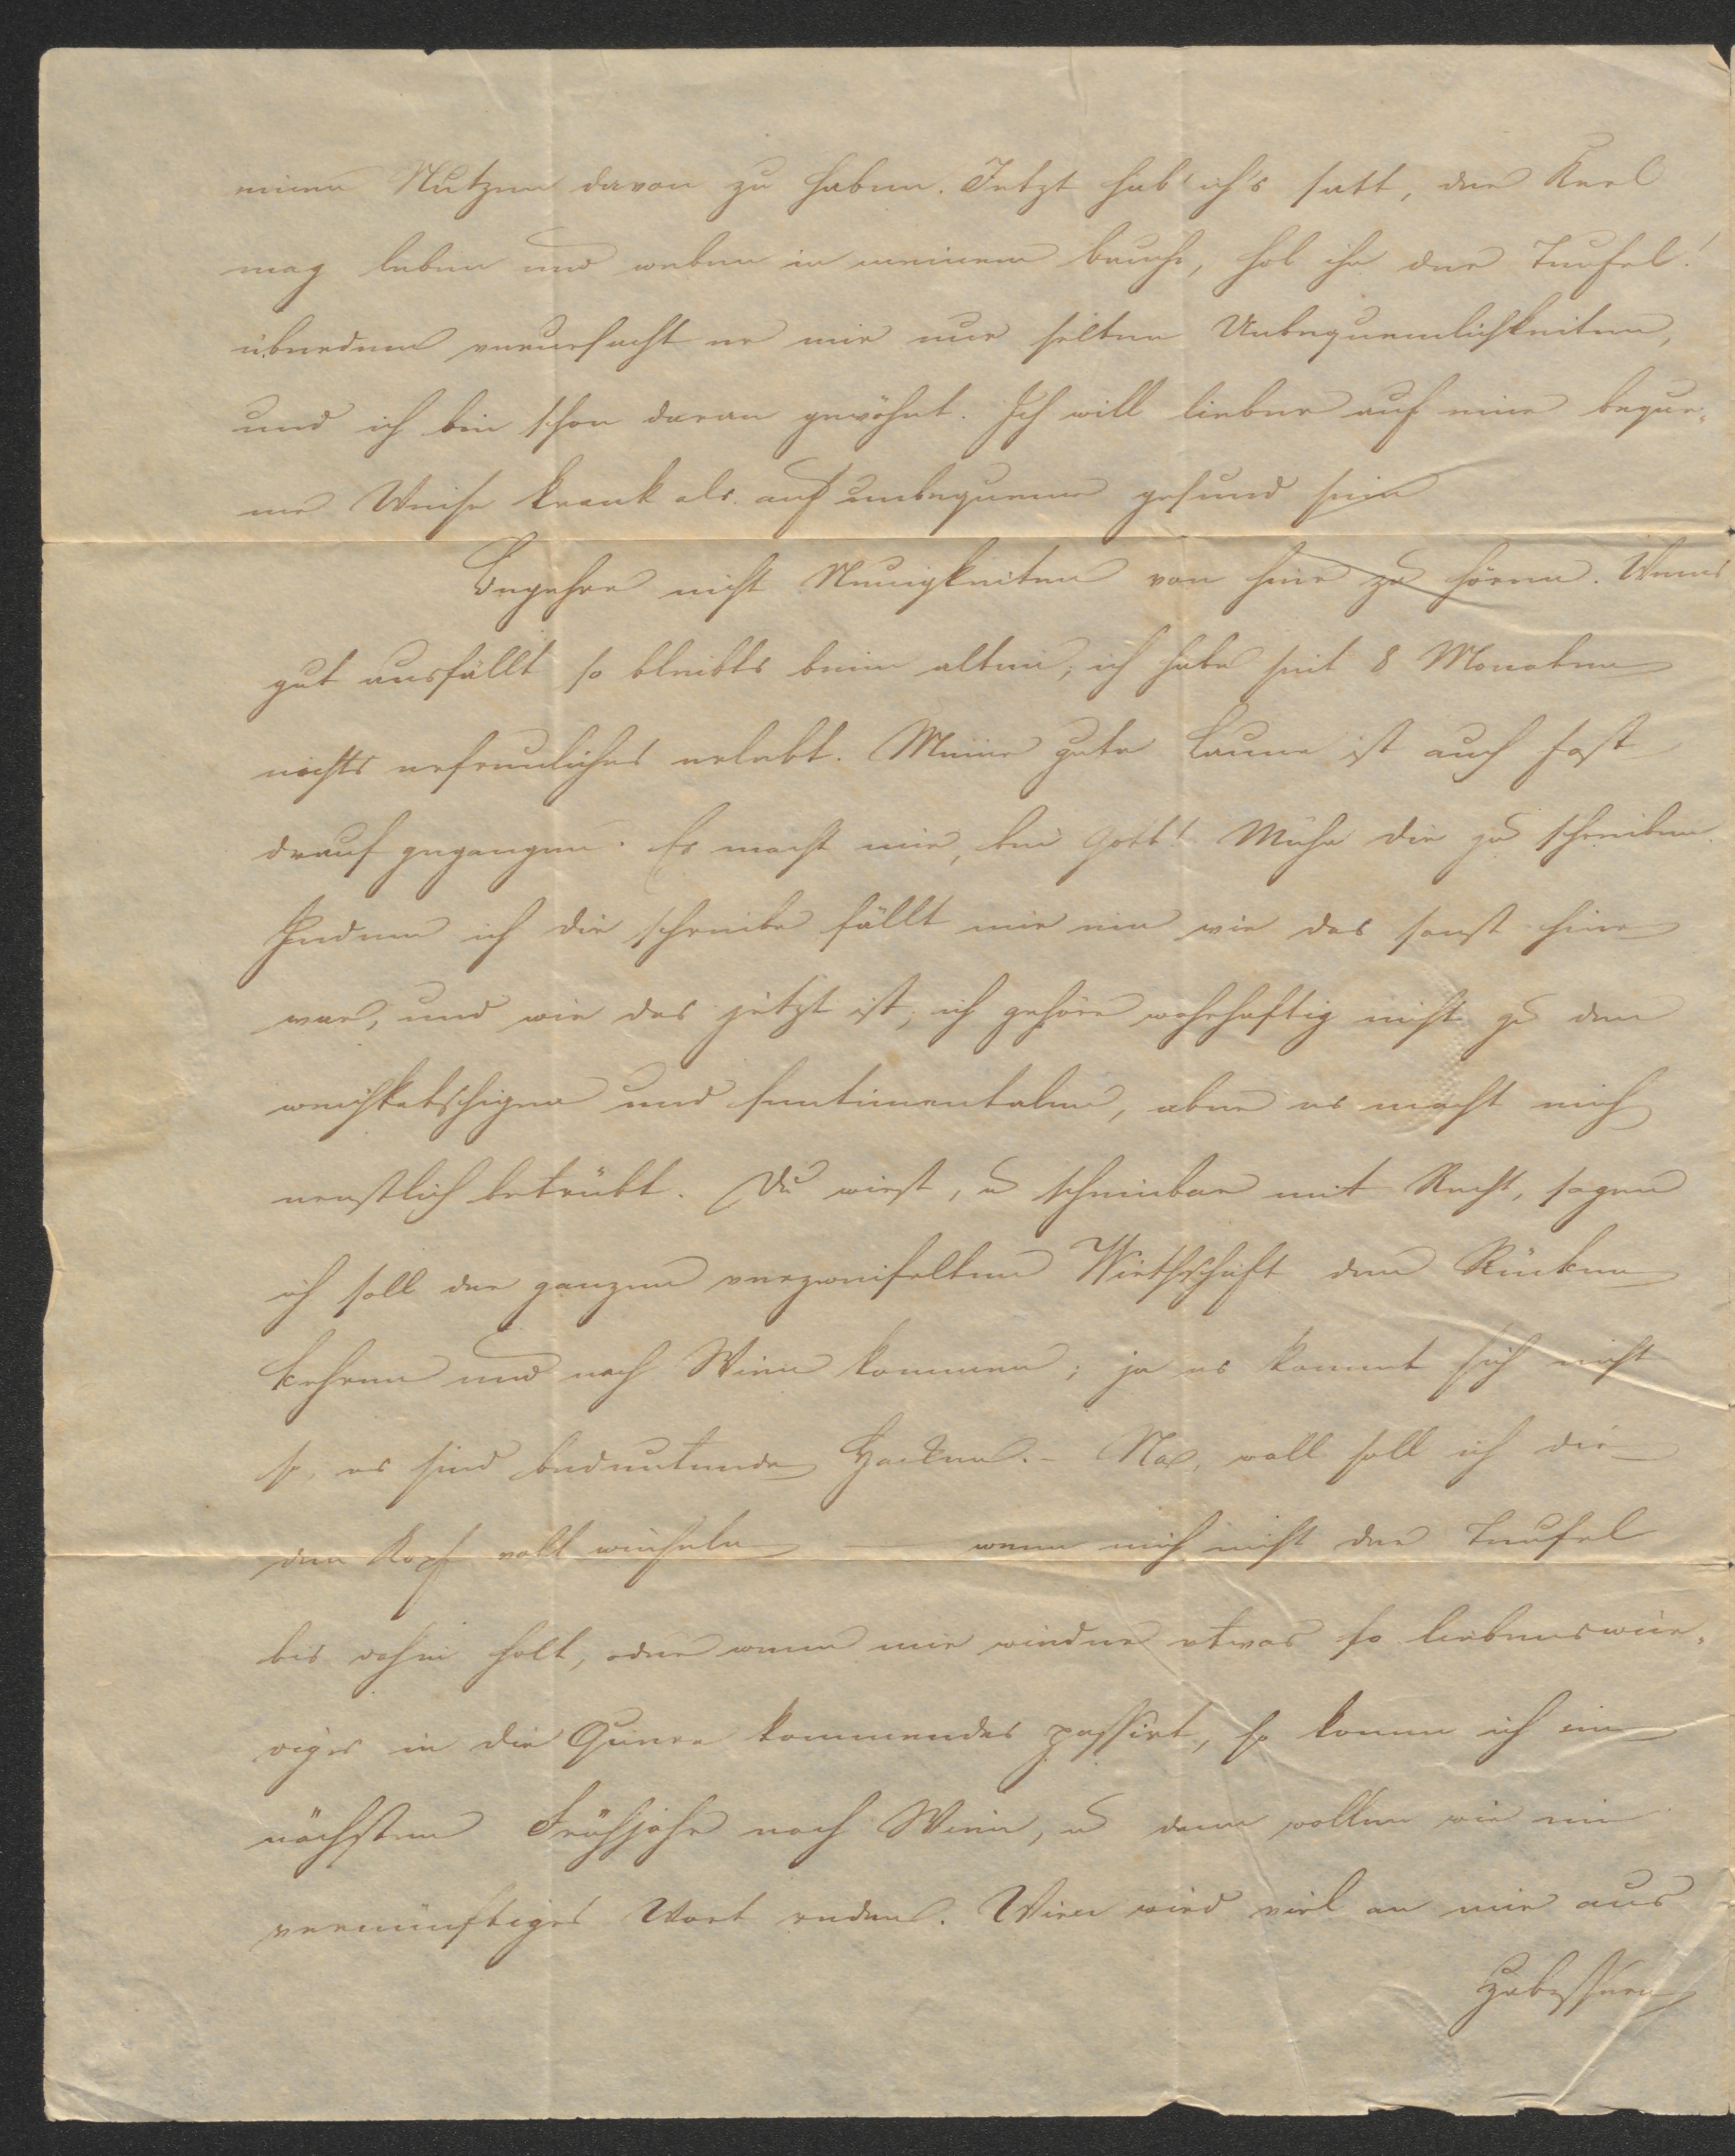 einen Nutzen davon zu haben. Jetzt hab' ich's satt, der Kerl
mag leben und weben in meinem bauche, hol ihn der Teufel!
überdem verursacht er mir nur selten Unbequemlichkeiten,
und ich bin schon daran gewöhnt. Ich will lieber auf eine beque-
me Weise krank als auf unbequeme gesund sein
Begehre nicht Neuigkeiten von hier zu hören. Wenns
gut ausfällt so bleibts beim alten; ich habe seit 8 Monaten
nichts erfreuliches erlebt. Meine gute Laune ist auch fast
drauf gegangen. Es macht mir, bei Gott! Mühe dir zu schreiben.
Indem ich dir schreibe fällt mir ein wie das sonst hier
war, und wie das jetzt ist; ich gehöre wahrhaftig nicht zu den
und sentimentalen, aber es macht mich
ernstlich betrübt. Du wirst, u scheinbar mit Recht, sagen
ich soll der ganzen verzweifelten Wirthschaft den Rücken
kehren und nach Wien kommen; ja es kommt sich nicht
so, es sind bedeutende Hacken. - Na, soll ich dir
den Kopf voll winseln — wenn mich nicht der Teufel
bis dahin holt, oder wenn mir wieder etwas so liebenswür-
diges in die Queere kommendes passirt, so komm ich im
nächsten Frühjahr nach Wien, u dann wollen wir ein
vernünftiges Wort reden. Wien wird viel an mir aus
zubessern